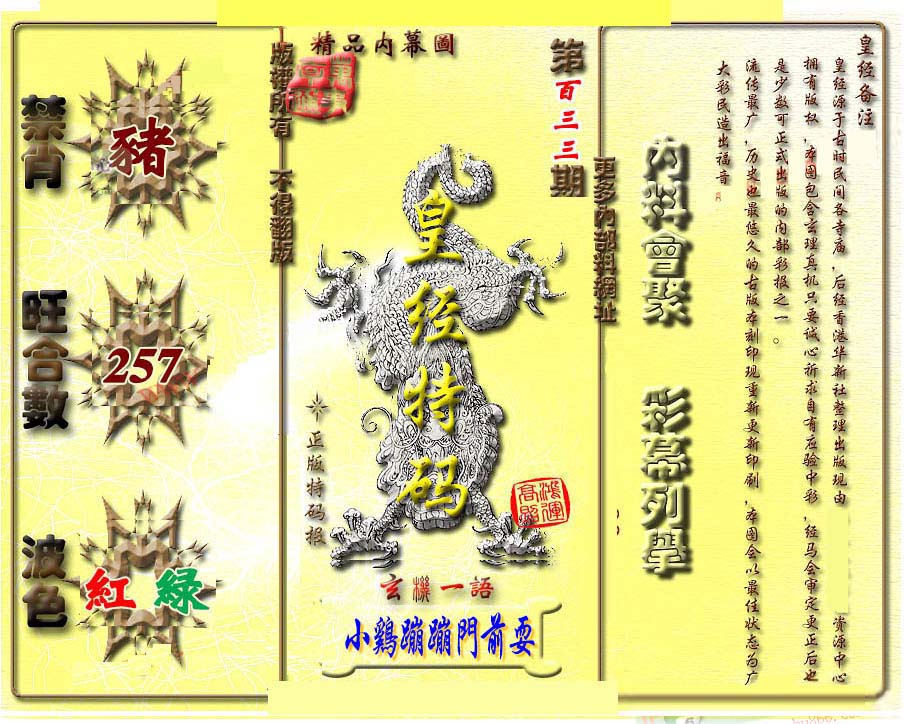 皇经备注
皇经源于古时民间各寺庙，后经香港华新社整理出版现由 资源中心
拥有版权，本图包含玄理真机只要诚心祈求自有应验中彩，经马会审定更正后也
是少数可正式出版的内部彩报之一。
流传最广，历史也最悠久的古版本刻印现重新更新印刷，本图会以最佳状态为广
大彩民造出福音
内料會聚
彩幕列擧
更多內部料網址
第百三三期
精品内幕圖
版權所有 不得翻版
皇经特码
正版特码报
鸿運
高照
玄機一語
小鷄蹦蹦門前耍
禁肖
豬
旺合數
257
波色
紅 綠